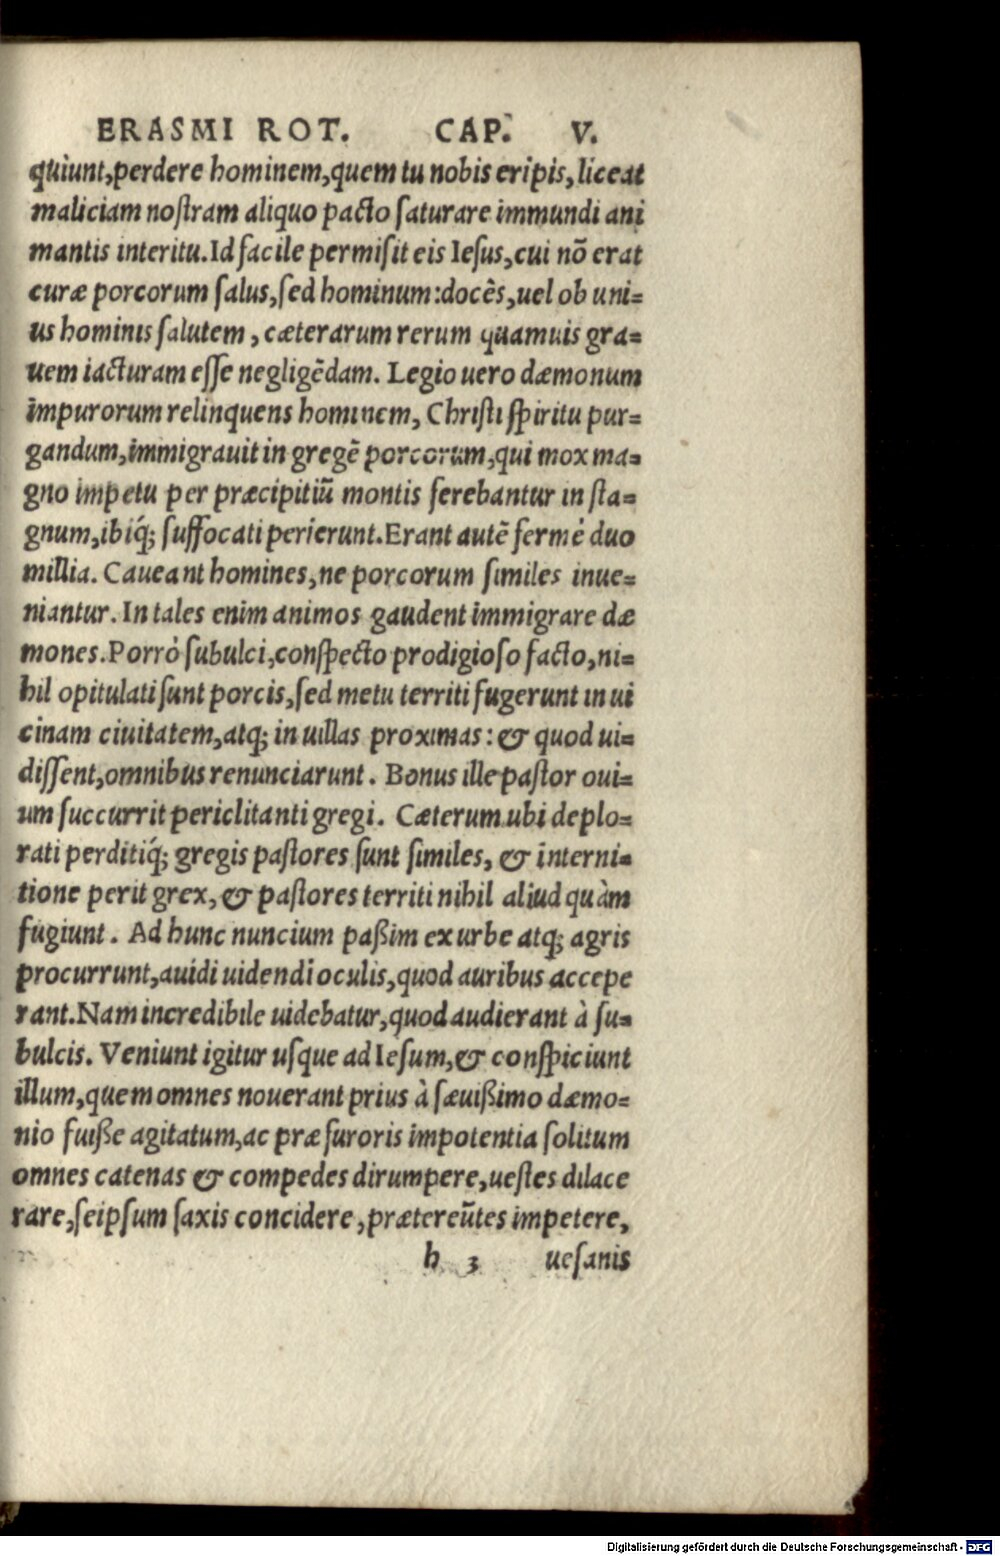 ERASMI ROT. CAP. V.
quiunt,perdere hominem,quem tu nobis eripis,liceat
maliciam noſtram aliquo pacto ſaturare immundi ani
mantis interitu.Id facile permiſit eis Ieſus,cui nõ erat
curæ porcorum ſalus,ſed hominum:docẽs,uel ob uni=
us hominis ſalutem , cæterarum rerum quamuis gra=
uem iacturam eſſe negligẽdam. Legio uero dæmonum
impurorum relinquens hominem, Chriſti ſpiritu pur=
gandum,immigrauit in gregẽ porcorum,qui mox ma=
gno impetu per præcipitiũ montis ferebantur in ſta=
gnum,ibiq́; ſuffocati perierunt.Erant autẽ fermè duo
millia. Caueant homines,ne porcorum ſimiles inue=
niantur. In tales enim animos gaudent immigrare dæ
mones.Porrò ſubulci,conſpecto prodigioſo facto,ni=
hil opitulati ſunt porcis,ſed metu territi fugerunt in ui
cinam ciuitatem,atq; in uillas proximas: & quod ui=
diſſent,omnibus renunciarunt. Bonus ille paſtor oui=
um ſuccurrit periclitanti gregi. Cæterum ubi deplo=
rati perditiq́; gregis paſtores ſunt ſimiles, & interni=
tione perit grex, & paſtores territi nihil aliud quàm
fugiunt. Ad hunc nuncium paßim ex urbe atq; agris
procurrunt,auidi uidendi oculis,quod auribus accepe
rant.Nam incredibile uidebatur,quod audierant à ſu=
bulcis. Veniunt igitur uſque ad Ieſum,& conſpiciunt
illum,quem omnes nouerant prius à ſæuißimo dæmo=
nio fuiße agitatum,ac præ furoris impotentia ſolitum
omnes catenas & compedes dirumpere,ueſtes dilace
rare,ſeipſum ſaxis concidere,prætereũtes impetere,
h 3 ueſanis
Digitalisierung gefördert durch die Deutsche Forschungsgemeinschaft - DFG